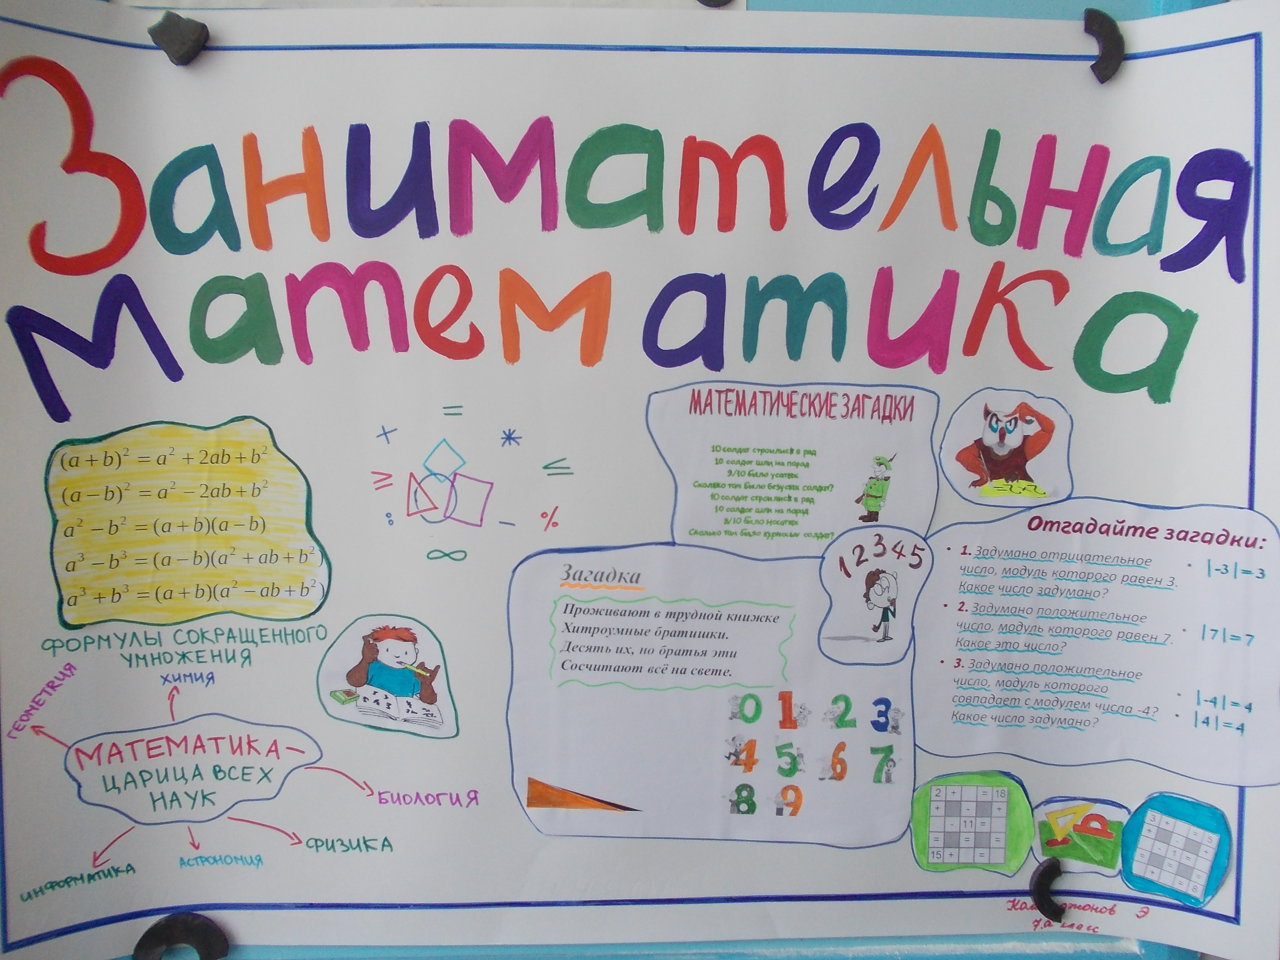 Занимательная
Математика
(a + b)² = a² + 2ab + b²
(a − b)² = a² − 2ab + b²
a² − b² = (a + b)(a − b)
a³ − b³ = (a − b)(a² + ab + b²)
a³ + b³ = (a + b)(a² − ab + b²)
ФОРМУЛЫ СОКРАЩЕННОГО
УМНОЖЕНИЯ
=
+ *
≥ ≤
: − %
∞
МАТЕМАТИЧЕСКИЕ ЗАГАДКИ
10 солдат строились в ряд
10 солдат шли на парад
9/10 было усатых
Сколько там было безусых солдат?
10 солдат строились в ряд
10 солдат шли на парад
8/10 было носатых
Сколько там было курносых солдат?
12345
Загадка
Проживают в трудной книжке
Хитроумные братишки.
Десять их, но братья эти
Сосчитают всё на свете.
0 1 2 3
4 5 6 7
8 9
Отгадайте загадки:
• 1. Задумано отрицательное
число, модуль которого равен 3.
Какое число задумано?
• |-3| = 3
• 2. Задумано положительное
число, модуль которого равен 7.
Какое это число?
• |7| = 7
• 3. Задумано положительное
число, модуль которого
совпадает с модулем числа -4?
Какое число задумано?
• |-4| = 4
• |4| = 4
ХИМИЯ
ГЕОМЕТРИЯ
МАТЕМАТИКА –
ЦАРИЦА ВСЕХ
НАУК
БИОЛОГИЯ
ФИЗИКА
АСТРОНОМИЯ
ИНФОРМАТИКА
2 + = 18
+ - +
- 11 =
= = =
15 +
3 + = 5
8
Э
7а класс